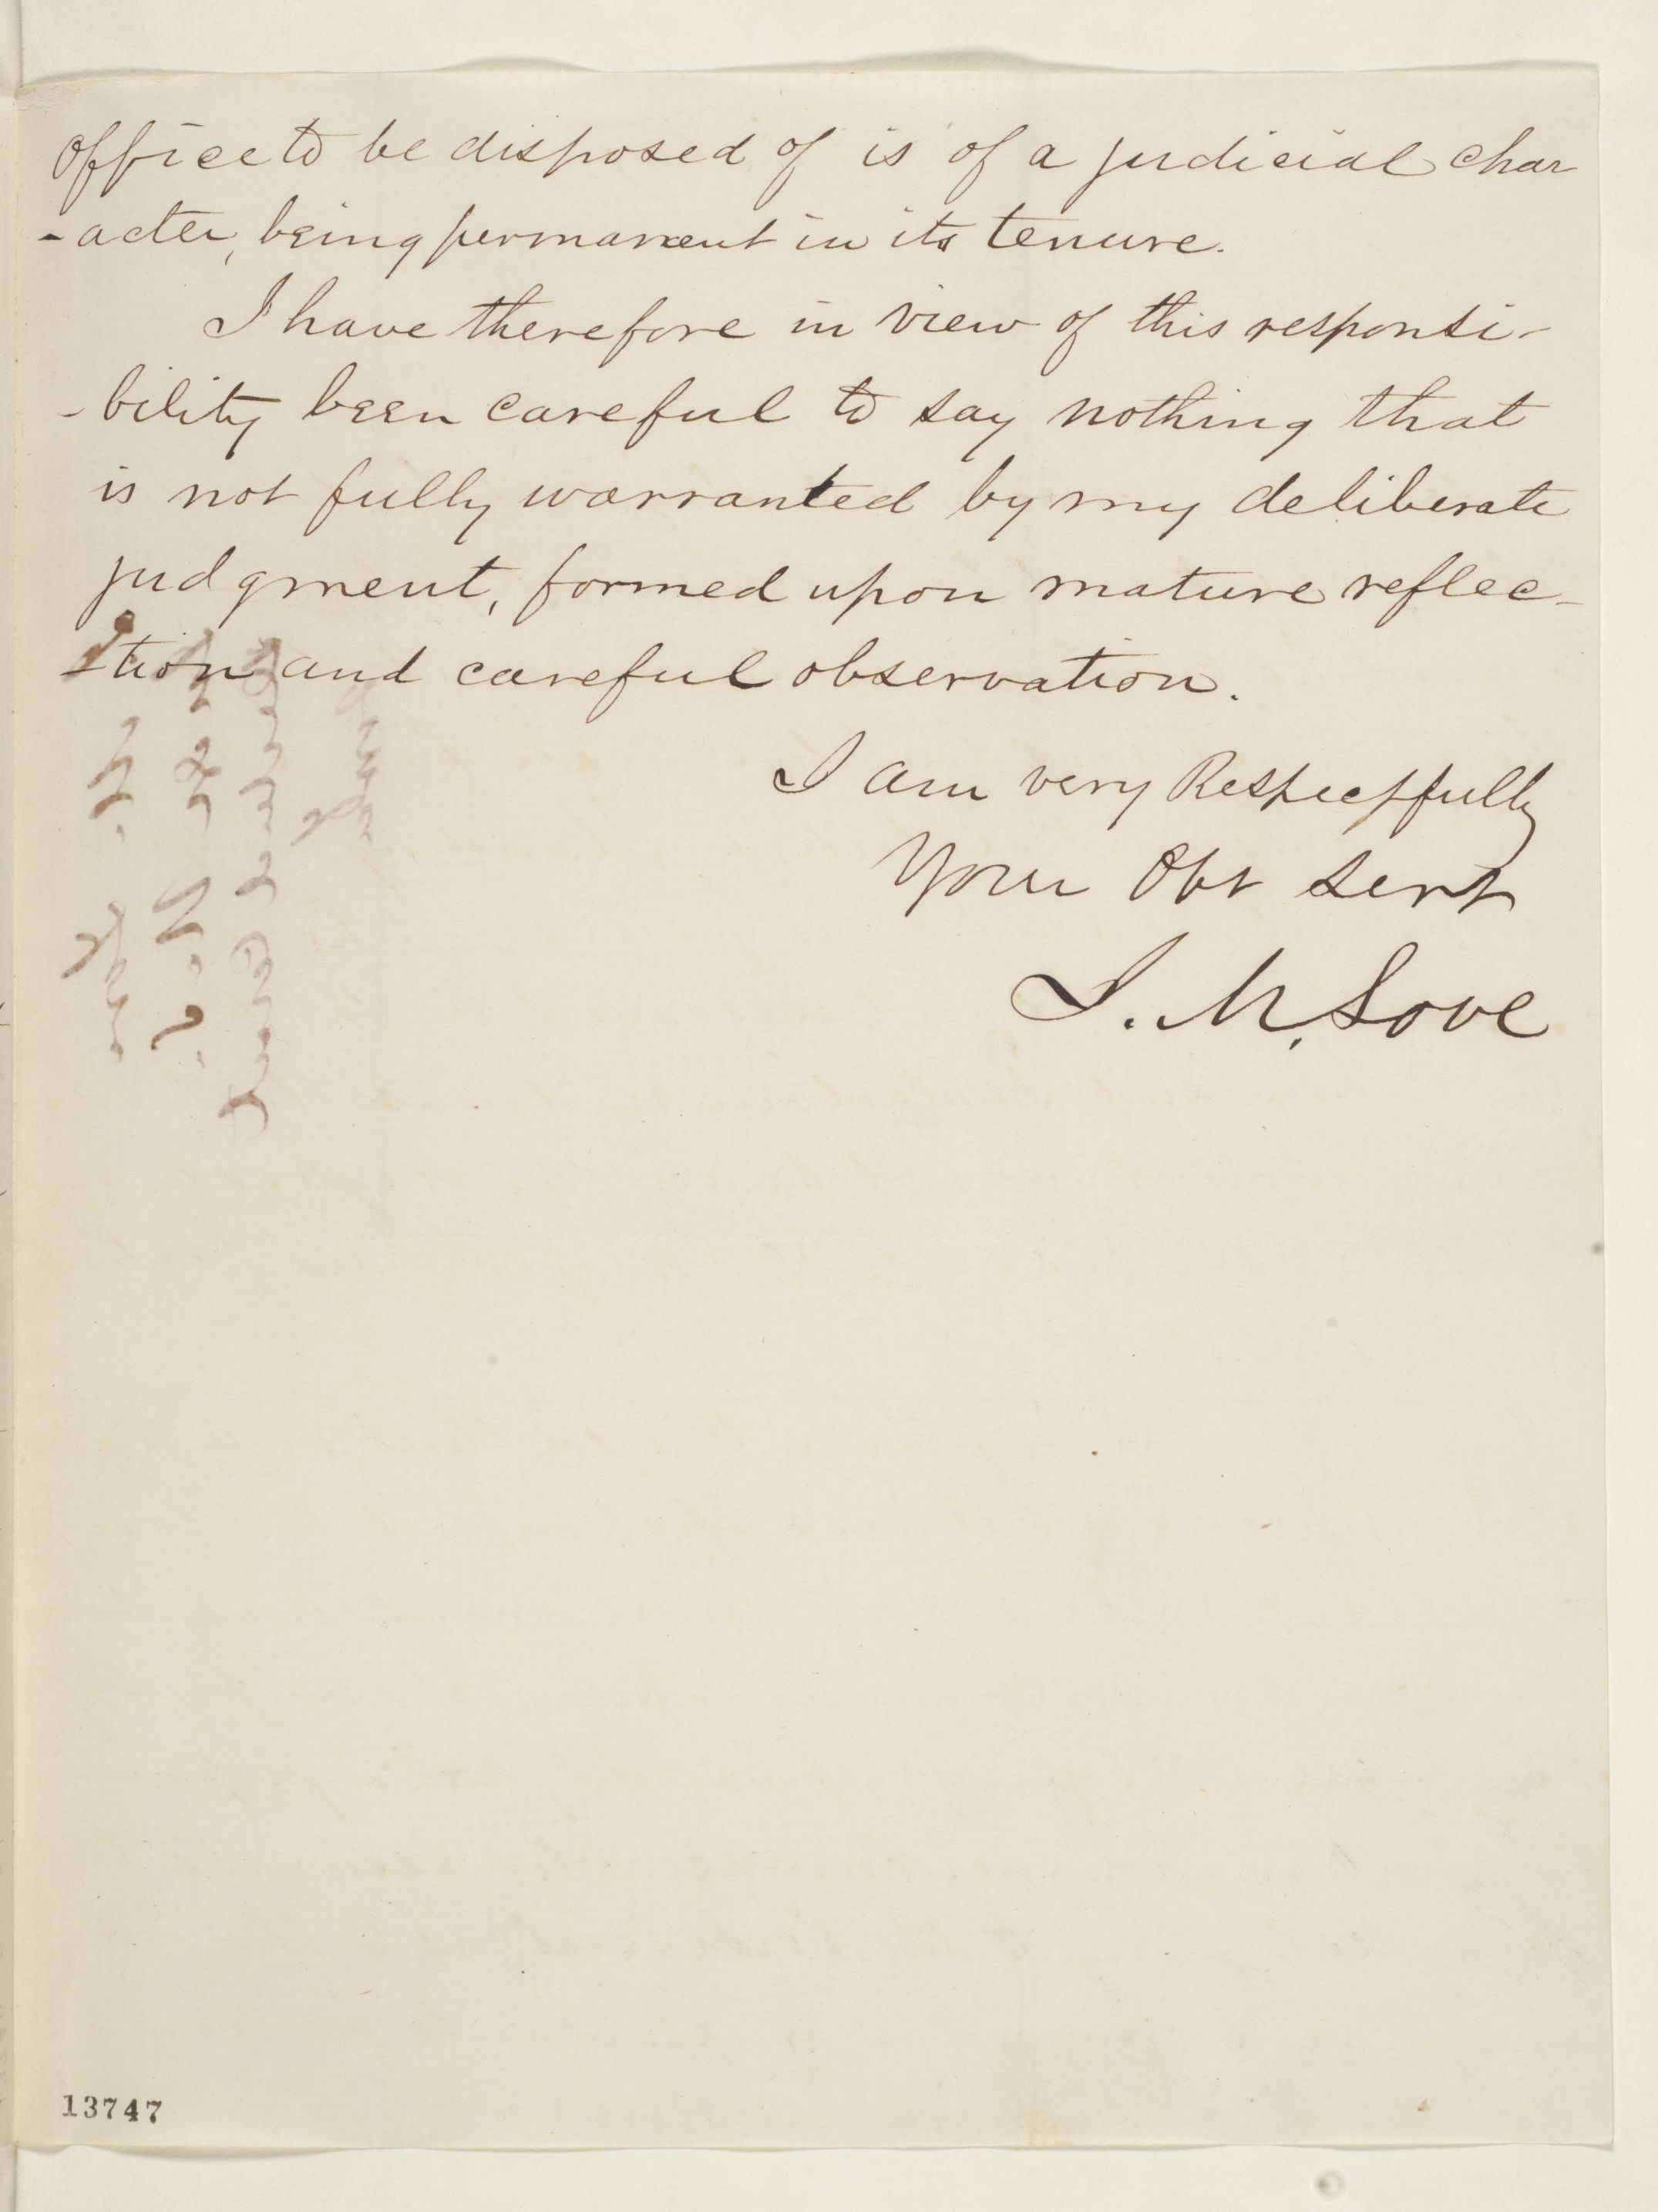 office to be disposed of is of a judicial char
-acter, being permanent in its tenure.
I have therefore in view of this responsi-
-bility been careful to say nothing that
is not fully warranted by my deliberate
judgment, formed upon mature reflec-
-tion and careful observation.
I am very Respectfully
Your Obt Servt
J. M. Love
13747